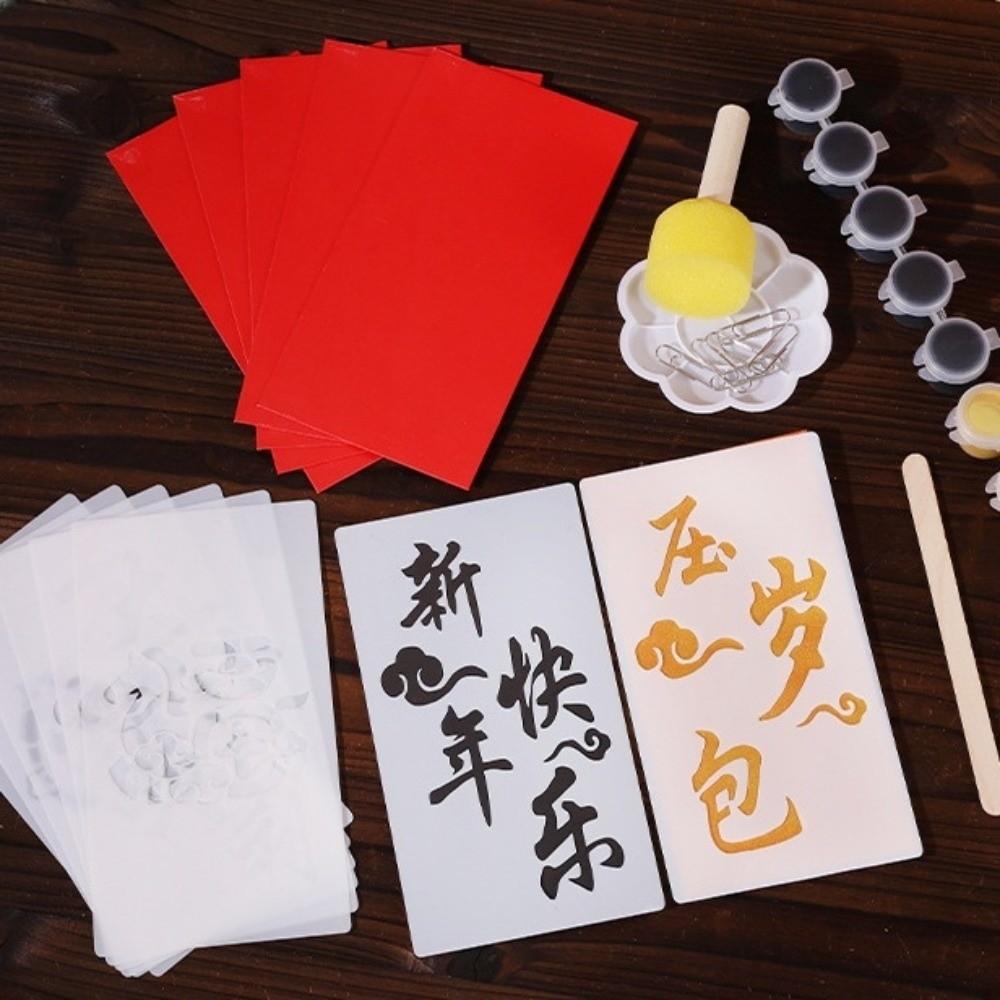 新年
快乐
压岁
包